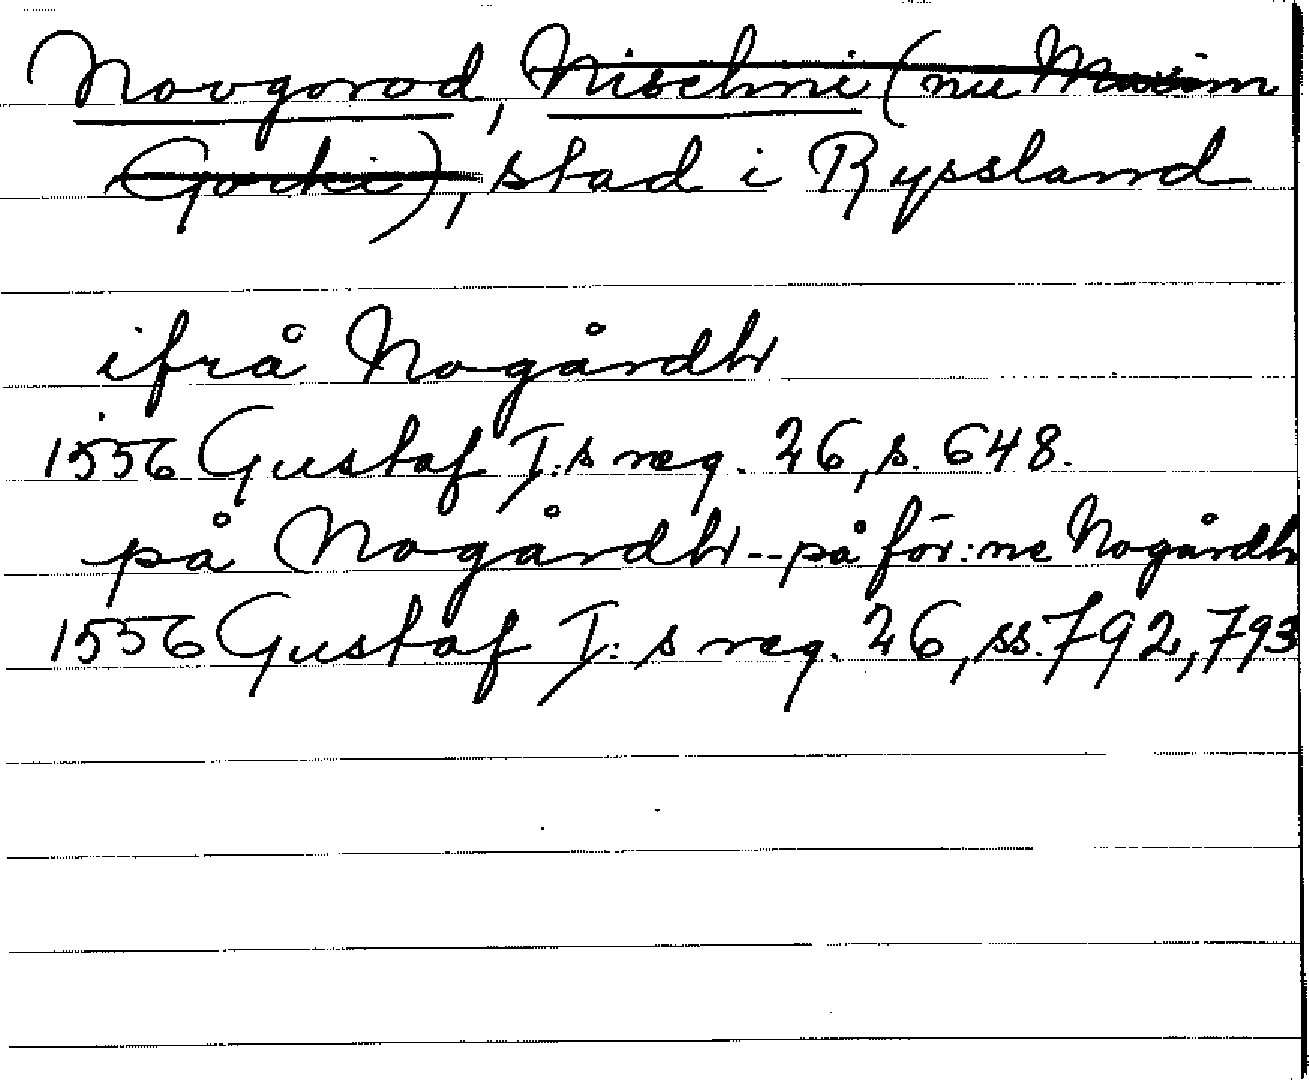 Novgorod, Nischni (nu Maxim
Gorki), stad i Ryssland
ifrå Nogårdh
1556 Gustaf I:s reg. 26, s. 648.
på Nogårdh -- på för:ne Nogårdh
1556 Gustaf I:s reg. 26, ss. 792, 793